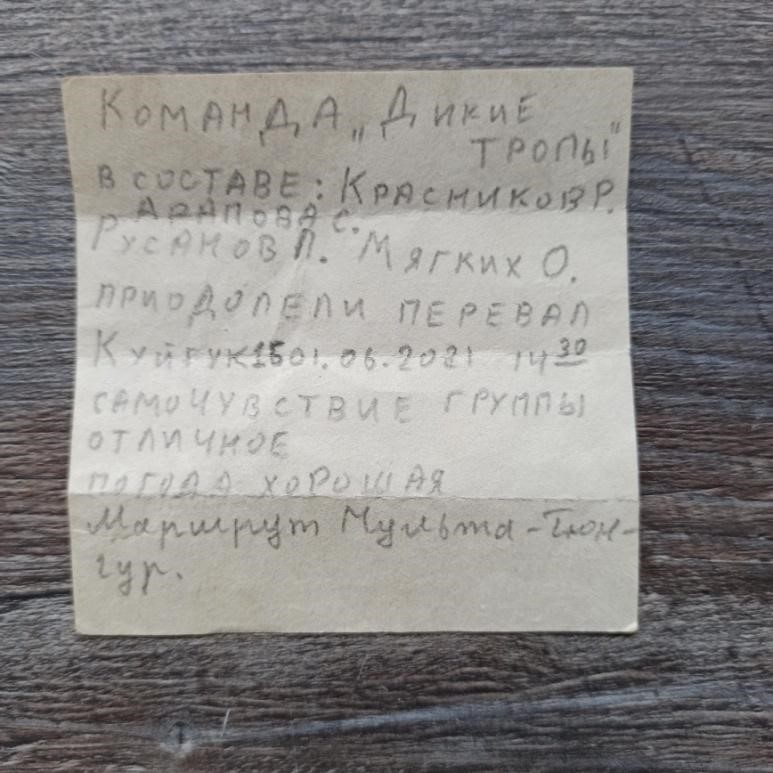 Команда „Дикие
тропы"
в составе: Красников Р.
Арапова С.
Русанов П. Мягких О.
приодолели перевал
Куйгук 1Б 01.06.2021 14 30
самочувствие группы
отличное
погода хорошая
Маршрут Мульта-Тюн-
гур.